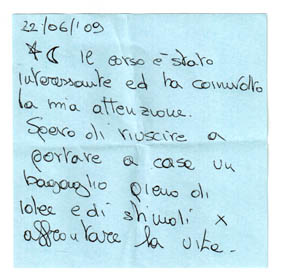 22/06/'09
Il corso è stato
interessante ed ha coinvolto
la mia attenzione.
Spero di riuscire a
portare a casa un
bagaglio pieno di
idee e di stimoli x
affrontare la vita.